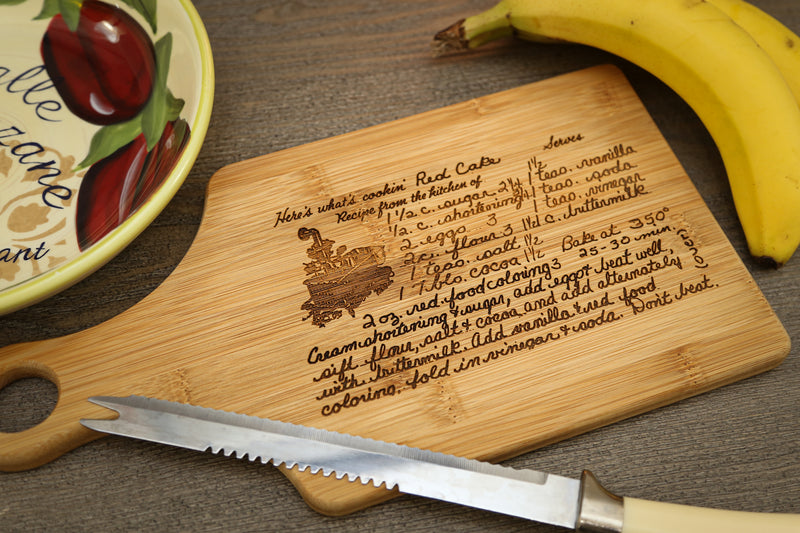 alle
zane
ant
Here's what's cookin' Red Cake Serves
Recipe from the kitchen of
1 1/2 c. sugar 2 1/4 1 teas. vanilla 1 1/2
1/2 c. shortening 3/4 1 teas. soda
2 eggs 3 1 teas. vinegar
2 c. flour 3 1 c. buttermilk 1 1/2
1 teas. salt 1 1/2 Bake at 350°
1 Tbls. cocoa 25-30 min.
2 oz. red food coloring 3
Cream shortening & sugar, add eggs beat well
sift flour, salt & cocoa and add alternately
with buttermilk. Add vanilla & red food
coloring, fold in vinegar & soda. Don't beat.